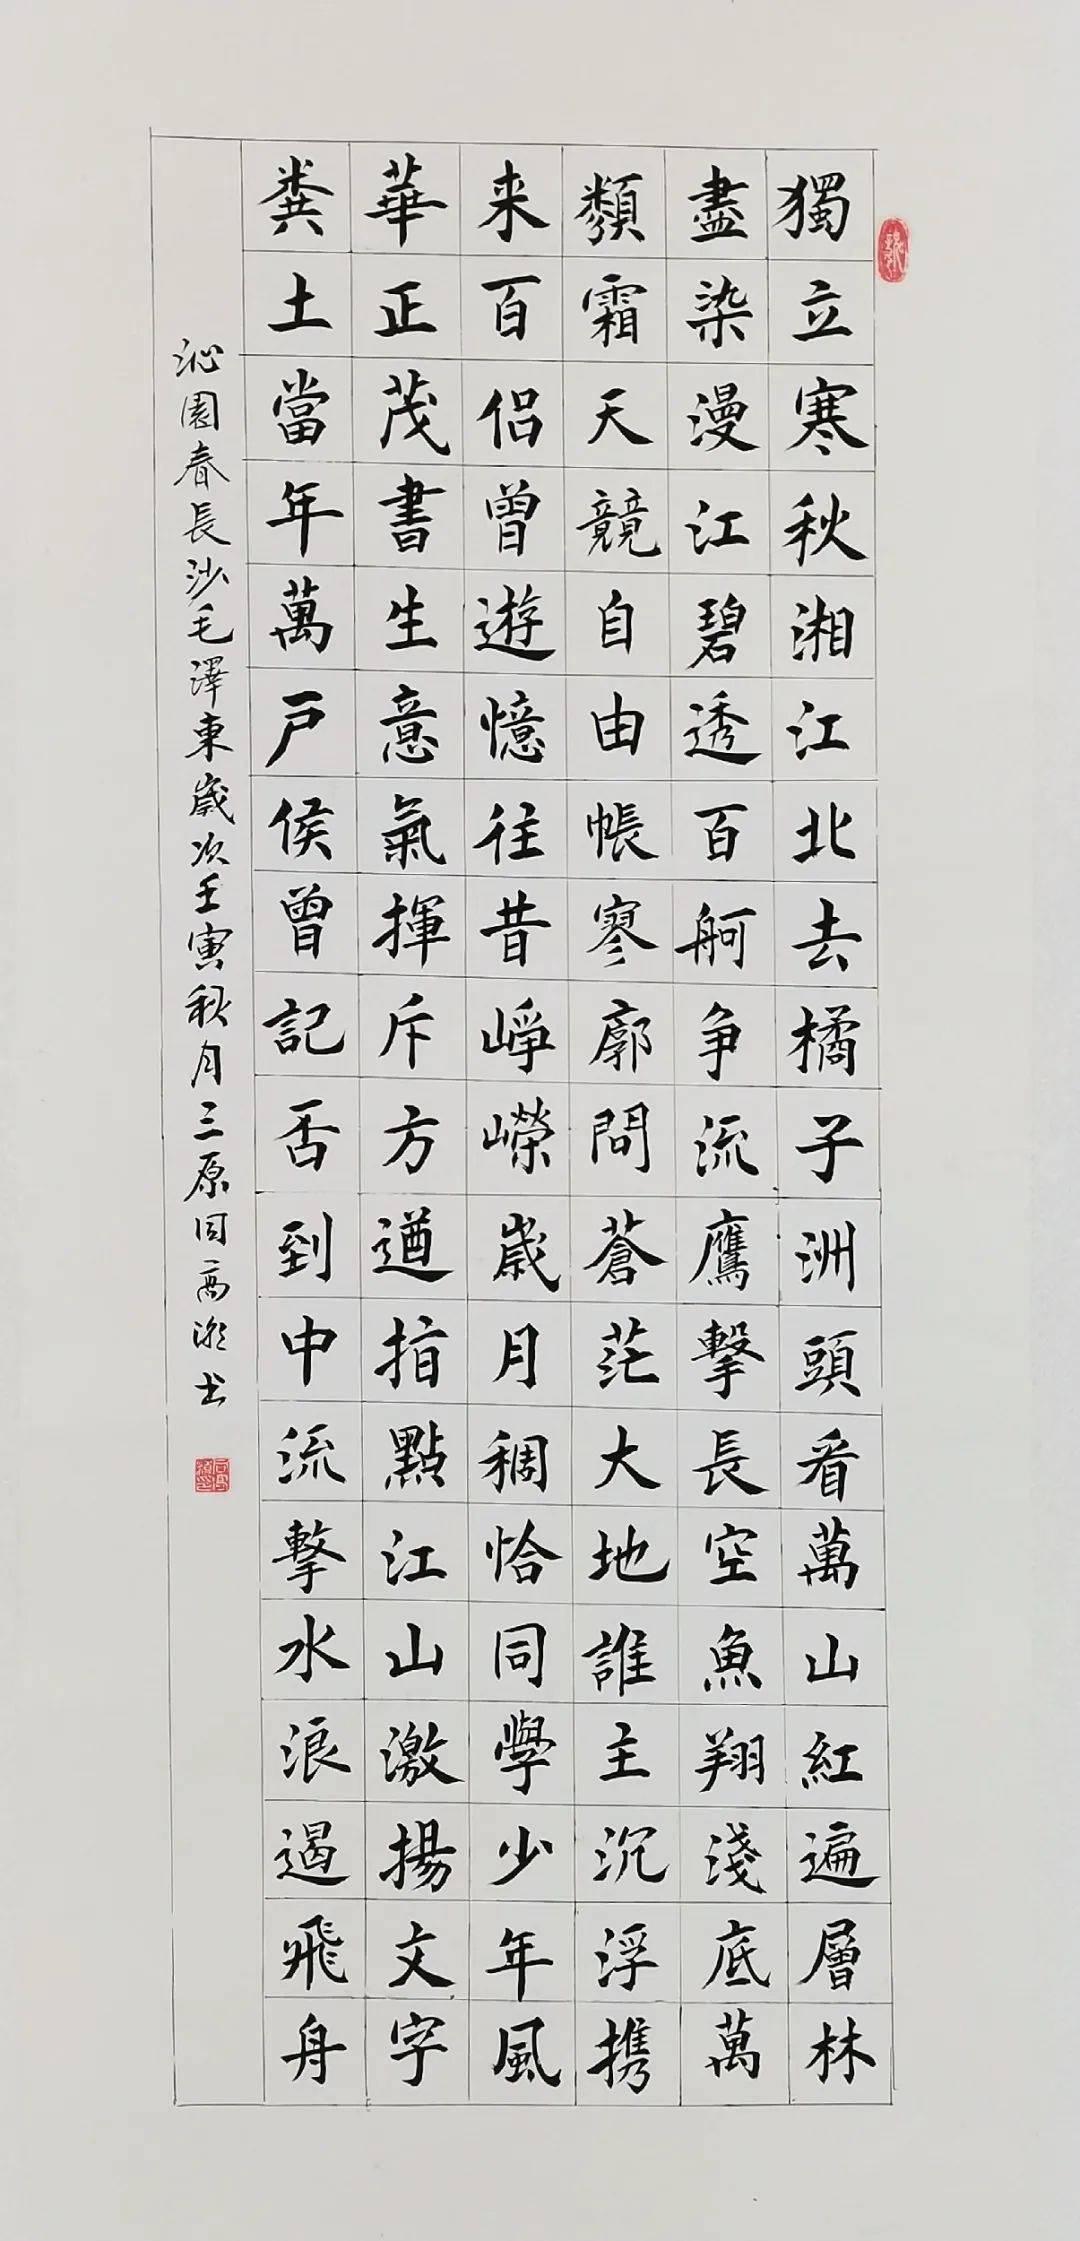 獨立寒秋湘江北去橘子洲頭看萬山紅遍層林
盡染漫江碧透百舸争流鷹擊長空魚翔淺底萬
類霜天競自由帳寥廓問蒼茫大地誰主沉浮携
来百侣曾遊憶往昔崢嶸歲月稠恰同學少年風
華正茂書生意氣揮斥方遒指點江山激揚文字
糞土當年萬户侯曾記否到中流擊水浪遏飛舟
沁園春長沙毛澤東歲次壬寅秋月三原书